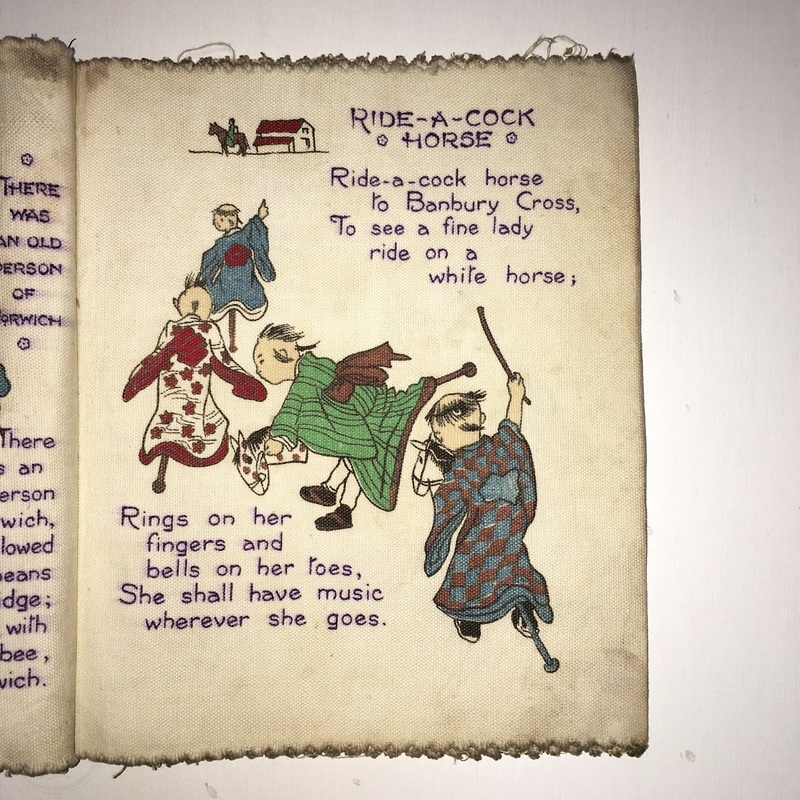 THERE
WAS
AN OLD
PERSON
OF
There
an
with
RIDE-A-COCK
HORSE
Ride-a-cock horse
to Banbury Cross,
To see a fine lady
ride on a
white horse;
Rings on her
fingers and
bells on her toes,
She shall have music
wherever she goes.